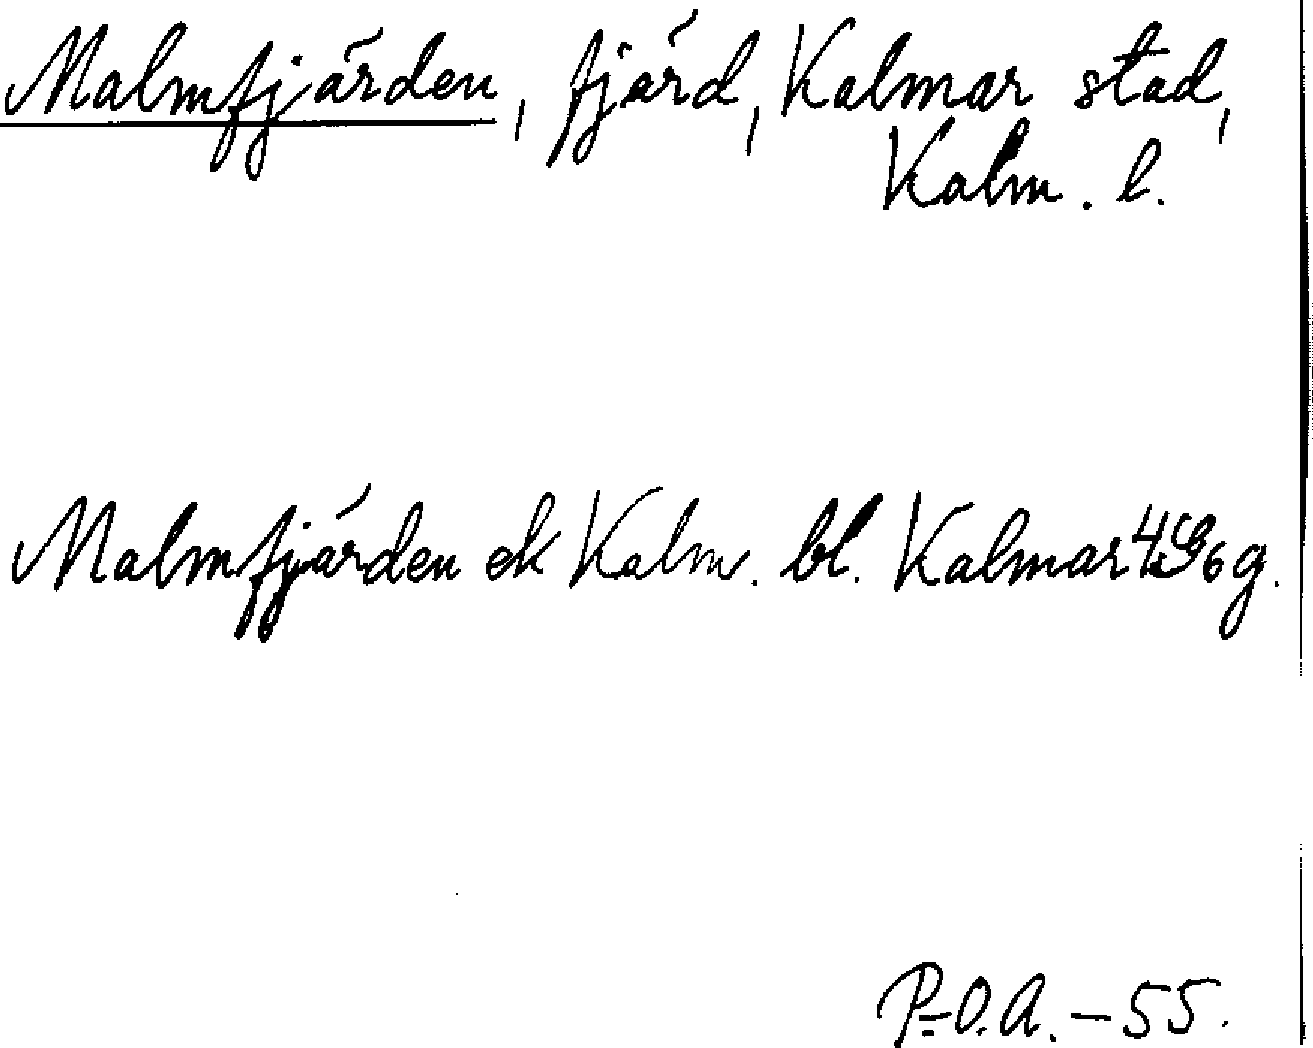 Malmfjärden, fjärd, Kalmar stad,
Kalm. l.
Malmfjärden ek Kalm. bl. Kalmar 4G6g.
P-O.A. - 55.